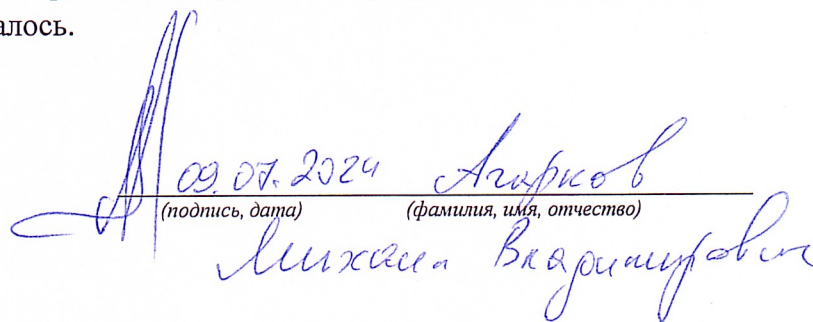 алось.
09.07.2024 Агарков
(подпись, дата) (фамилия, имя, отчество)
Михаил Владимирович